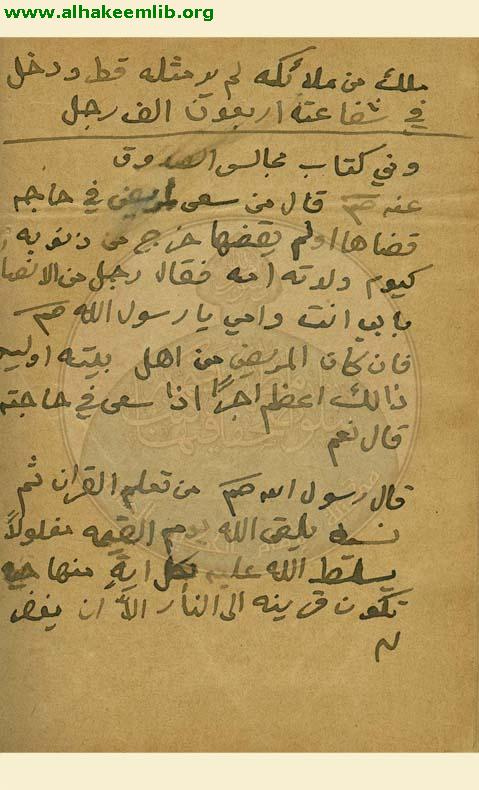 www.alhakeemlib.org
ملك من ملائكه لم ير مثله قط ودخل
في شفاعته اربعون الف رجل
وفي كتاب مجالس الصدوق
عنه صم قال من سعى لمريض في حاجه
قضاها او لم يقضها خرج من ذنوبه
كيوم ولدته امه فقال رجل من الانصا
بابي انت وامي يا رسول الله صم
فان كان المريض من اهل بيته اوليـ
ذالك اعظم اجرًا اذا سعى في حاجته
قال نعم
قال رسول الله صم من تعلم القران ثم
نسيه يلقى الله يوم القيمه مغلولاً
يسلط الله عليه بكل اية منها حيه
تكون قرينه الى النار الا ان يغفر
له